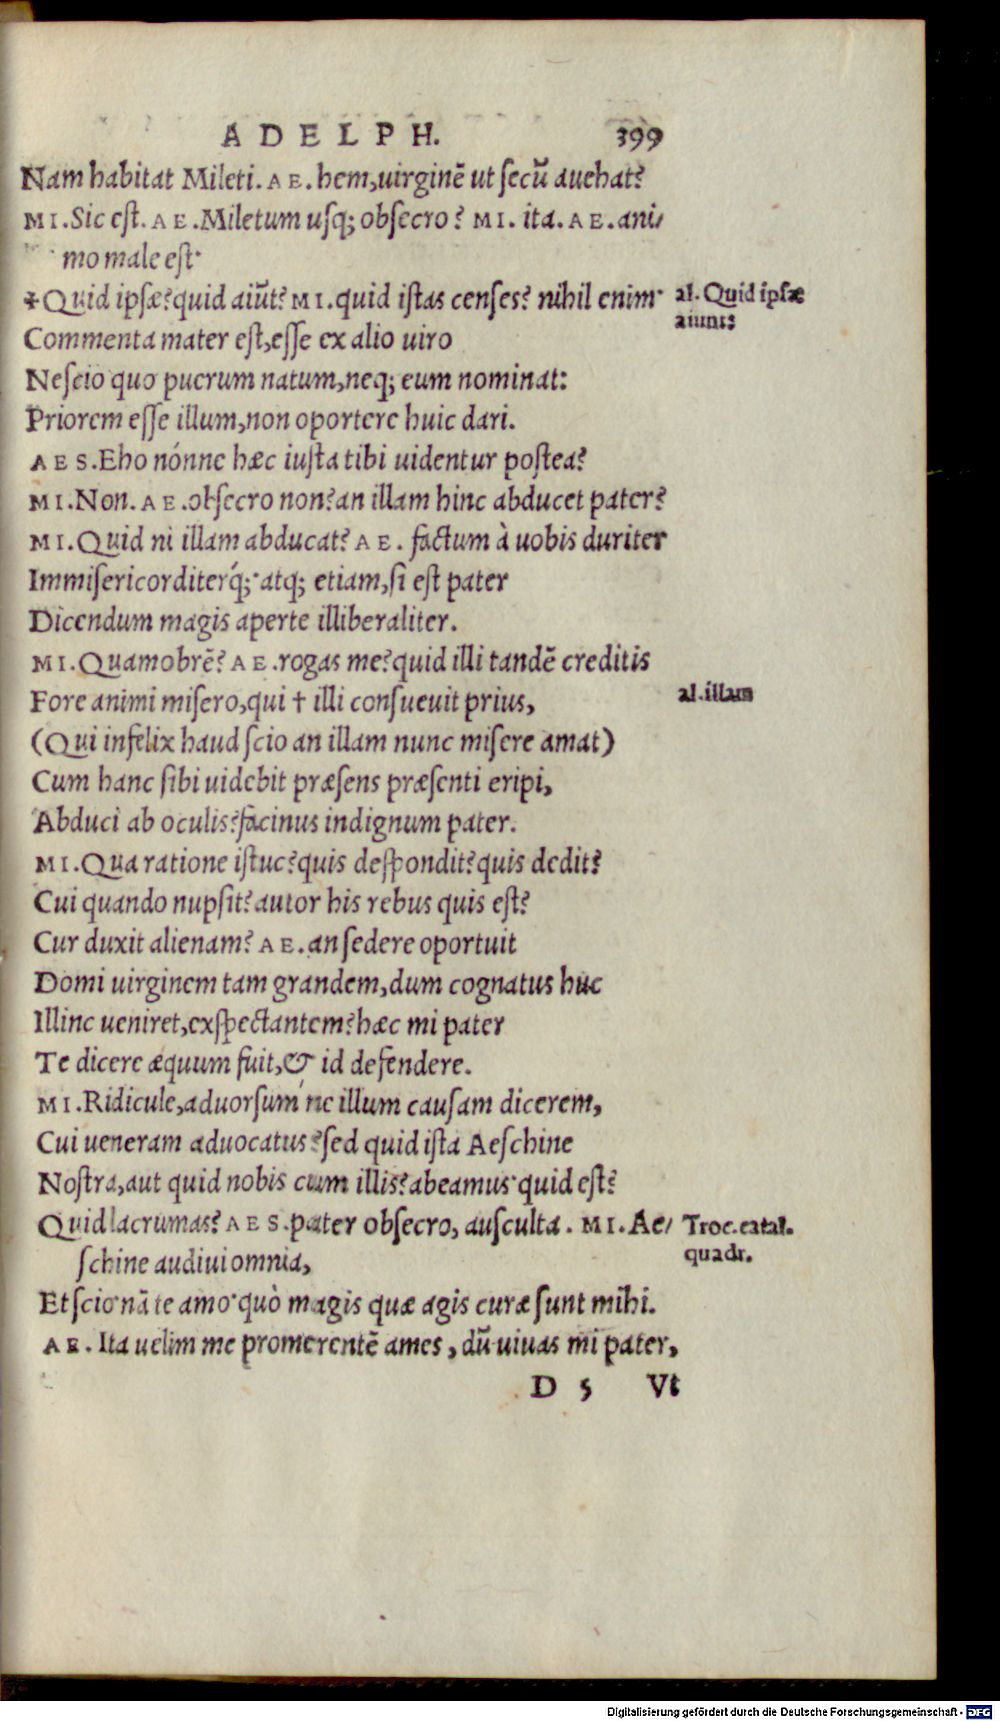 ADELPH. 399
Nam habitat Mileti. AE. hem, uirginē ut secū auehat?
MI. Sic est. AE. Miletum usq; obsecro? MI. ita. AE. ani/
mo male est·
✢Quid ipsæ? quid aiūt? MI. quid istas censes? nihil enim·
al. Quid ipsæ
aiunt?
Commenta mater est, esse ex alio uiro
Nescio quo puerum natum, neq; eum nominat:
Priorem esse illum, non oportere huic dari.
AES. Eho nónne hæc iusta tibi uidentur postea?
MI. Non. AE. obsecro non? an illam hinc abducet pater?
MI. Quid ni illam abducat? AE. factum à uobis duriter
Immisericorditerq́;· atq; etiam, si est pater
Dicendum magis aperte illiberaliter.
MI. Quamobrē? AE. rogas me? quid illi tandē creditis
Fore animi misero, qui † illi consueuit prius,
al. illam
(Qui infelix haud scio an illam nunc misere amat)
Cum hanc sibi uidebit præsens præsenti eripi,
Abduci ab oculis? facinus indignum pater.
MI. Qua ratione istuc? quis despondit? quis dedit?
Cui quando nupsit? autor his rebus quis est?
Cur duxit alienam? AE. an sedere oportuit
Domi uirginem tam grandem, dum cognatus huc
Illinc ueniret, exspectantem? hæc mi pater
Te dicere æquum fuit, & id defendere.
MI. Ridicule, aduorsum ne illum causam dicerem,
Cui ueneram aduocatus? sed quid ista Aeschine
Nostra, aut quid nobis cum illis? abeamus· quid est?
Quid lacrumas? AES. pater obsecro, ausculta. MI. Ae/
Troc. catal.
quadr.
schine audiui omnia,
Et scio· nā te amo· quò magis quæ agis curæ sunt mihi.
AE. Ita uelim me promerentē ames, dū uiuas mi pater,
D 5 Vt
Digitalisierung gefördert durch die Deutsche Forschungsgemeinschaft - DFG